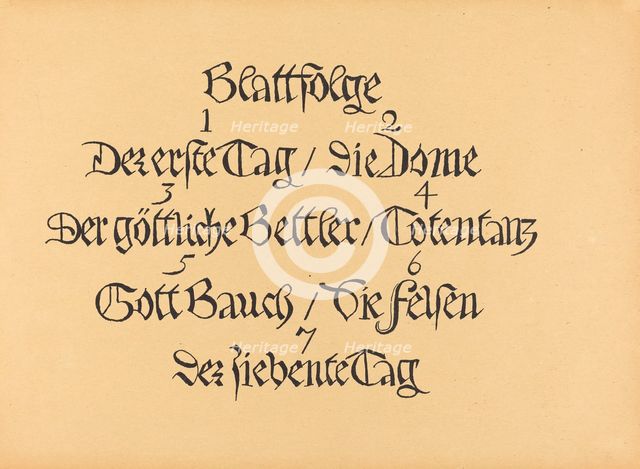 Blattfolge
1 2
Der erste Tag / Die Dome
3 4
Der göttliche Bettler / Totentanz
5 6
Gott Bauch / Die Felsen
7
Der siebente Tag
Heritage Heritage
Heritage Heritage
Heritage Heritage
Heritage Heritage
©